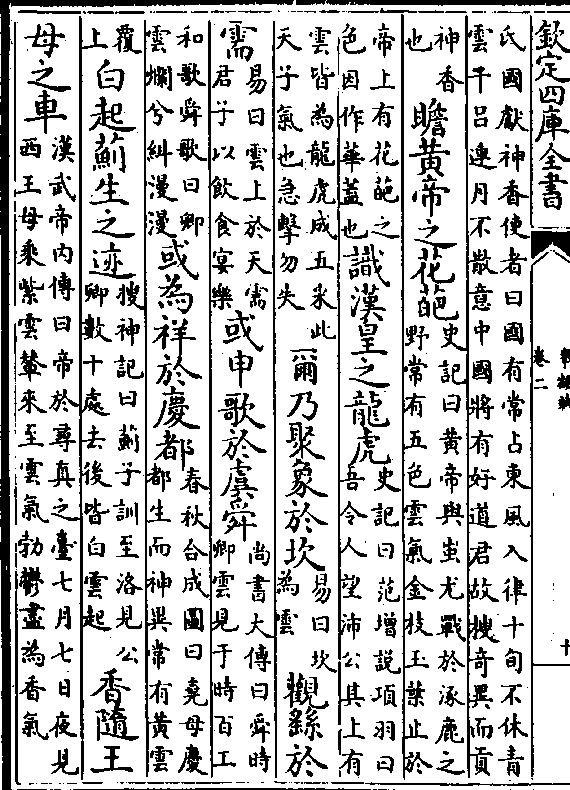 欽定四庫全書
卷二
十
氏國獻神香使者曰國有常占東風入律十旬不休青
雲干呂連月不散意中國將有好道君故搜奇異而貢
神香
也
瞻黃帝之花葩
史記曰黃帝與蚩尤戰於涿鹿之
野常有五色雲氣金枝玉葉止於
帝上有花葩之
色因作華蓋也
識漢皇之龍虎
史記曰范增説項羽曰
吾令人望沛公其上有
雲皆為龍虎成五采此
天子氣也急擊勿失
爾乃聚象於坎
易曰坎
為雲
觀繇於
需
易曰雲上於天需
君子以飲食宴樂
或申歌於虞舜
尚書大傳曰舜時
卿雲見于時百工
和歌舜歌曰卿
雲爛兮糾漫漫
或為祥於慶都
春秋合成圖曰堯母慶
都生而神異常有黃雲
覆
上
白起薊生之迹
搜神記曰薊子訓至洛見公
卿數十處去後皆白雲起
香隨王
母之車
漢武帝內傳曰帝於尋真之臺七月七日夜見
西王母乘紫雲輦來至雲氣勃鬱盡為香氣